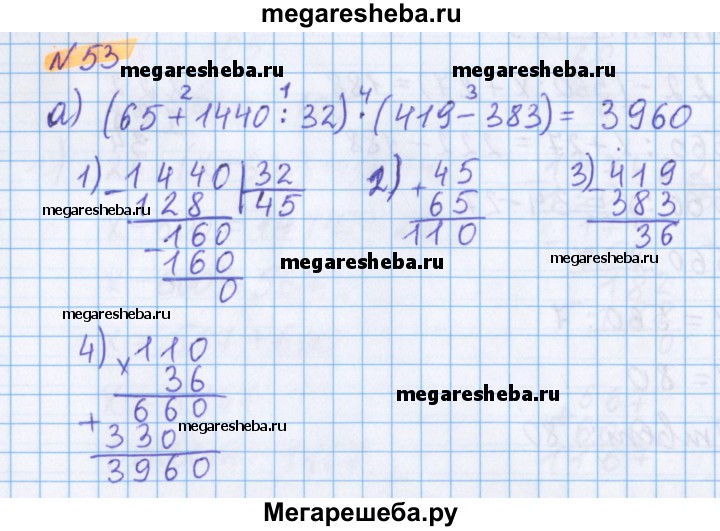 megaresheba.ru
N 53
megaresheba.ru megaresheba.ru
2 1 4 3
а) (65+1440:32)·(419-383)= 3960
1) -1440|32 2) +45 3) -419
128 45 65 383
megaresheba.ru
-160 110 36
160 megaresheba.ru megaresheba.ru
0
megaresheba.ru
4) ×110
36
+660
megaresheba.ru
330
3960
Мегарешеба.ру